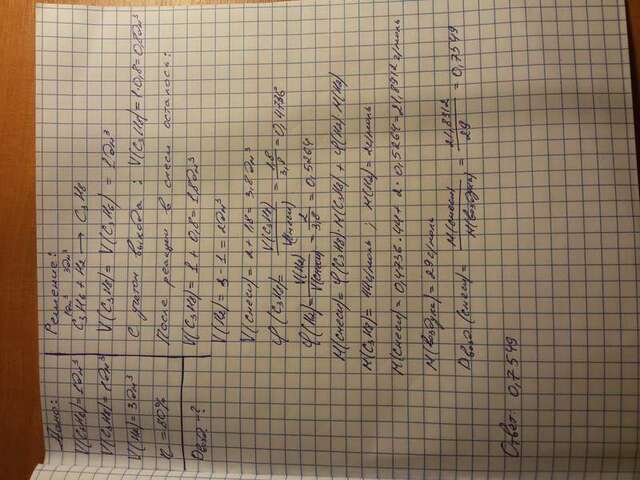 Дано:
V(C3H8)=1дм³
V(C3H6)=1дм³
V(H2)=3дм³
η=80%
Dвозд=?
Решение:
1дм³ 3дм³
C3H6 + H2 → C3H8
V(C3H6)= V(C3H8) = 1дм³
С учетом выхода: V(C3H8)=1·0,8=0,8дм³
После реакции в смеси осталось:
V(C3H8)=1+0,8=1,8дм³
V(H2)=3-1=2дм³
V(смеси)=2+1,8=3,8дм³
φ(C3H8)= V(C3H8)/V(смеси) = 1,8/3,8 =0,4736
φ(H2)= V(H2)/V(смеси) = 2/3,8 =0,5264
M(смеси)= φ(C3H8)·M(C3H8)+ φ(H2)·M(H2)
M(C3H8)=44г/моль; M(H2)=2г/моль
M(смеси)=0,4736·44+2·0,5264=21,8912г/моль
M(воздух)=29г/моль
Dвозд(смеси)= M(смеси)/M(воздух) = 21,8912/29 =0,7549
Ответ: 0,7549